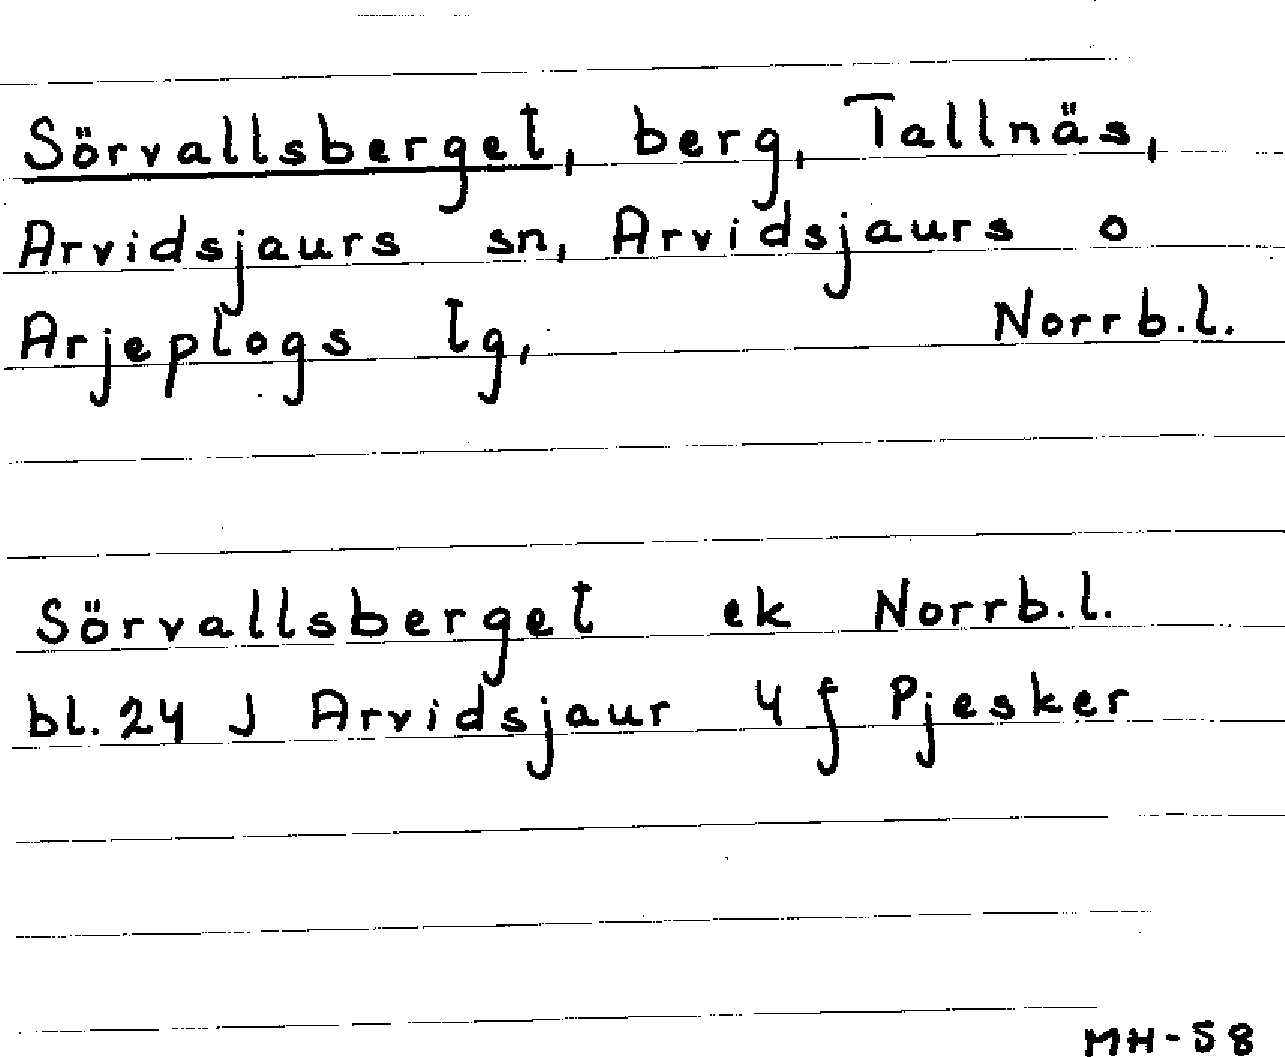 Sörvallsberget, berg, Tallnäs,
Arvidsjaurs sn, Arvidsjaurs o
Arjeplogs lg, Norrb.l.
Sörvallsberget ek Norrb.l.
bl. 24 J Arvidsjaur 4 f Pjesker
MH-58